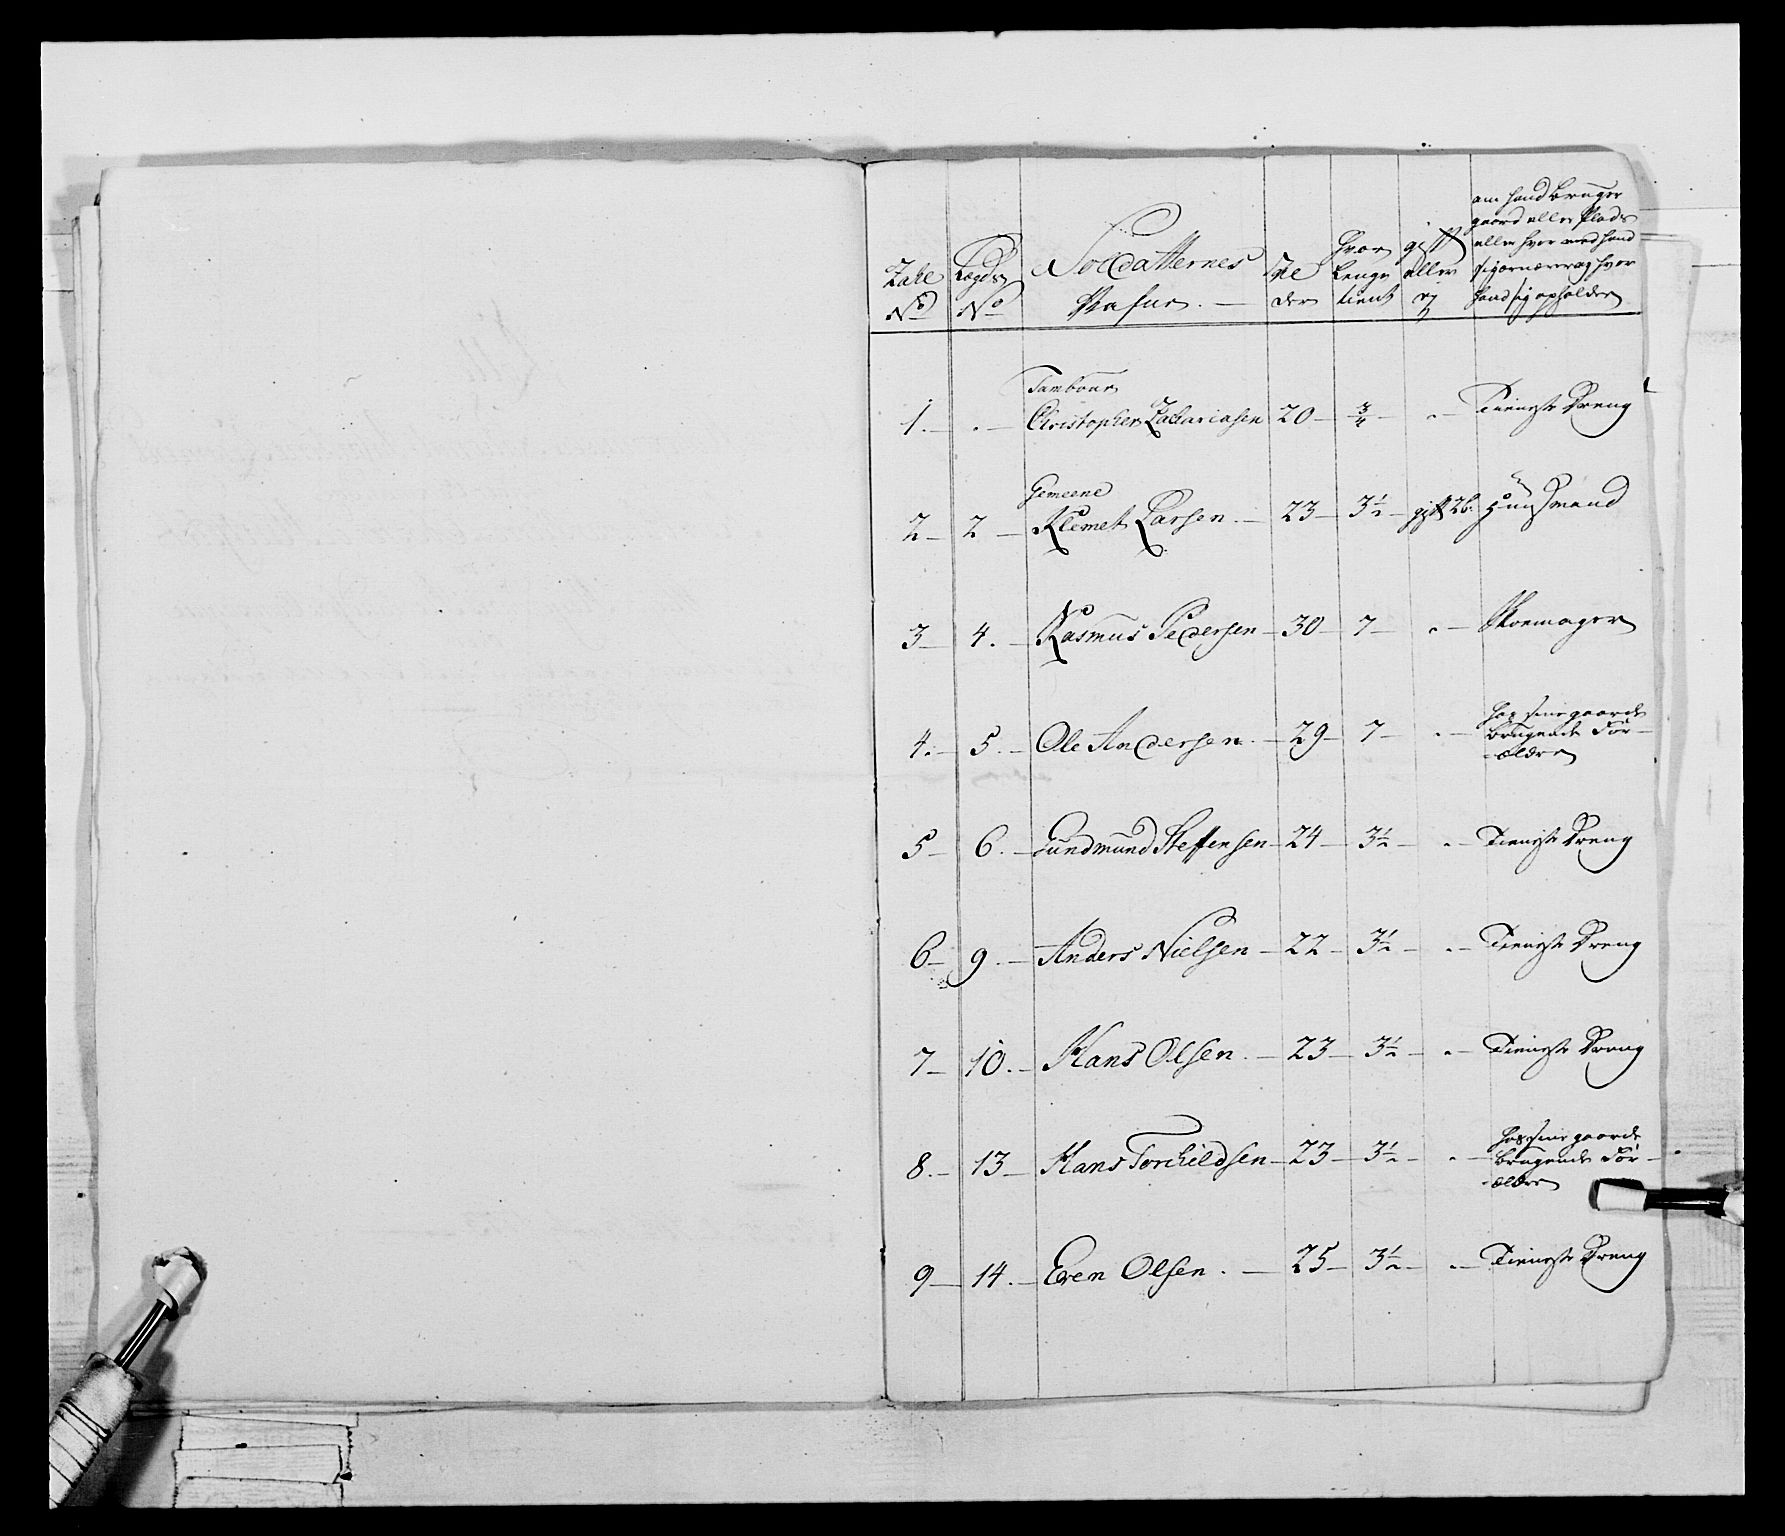 Zahl No | Lægds No | Soldatternes Nafne. — | Al der | hvor Lenge tient | gift eller ej | om hand bruger gaard eller Plads eller hvor med hand sig ernærer og hver hand sig opholder
Tambour
1. — . — Christopher Zakariasen 20 — 3/4 — . — Tieniste Dreng
Gemeene
2 — 2 — Klemet Larsen. — 23 — 3 1/2 — gift 2b. Huusmand
3 — 4. — Rasmus Pedersen — 30 — 7 — . — Skoemager
4. — 5. — Ole Andersen. — 29 — 7 — . — hos sine gaard
brugende For-
-ældre
5 — 6. — Gundmund Steffensen — 24 — 3 1/2 — . — Tieniste Dreng
6 — 9. — Anders Nielsen — 22 — 3 1/2 — . — Tieniste Dreng
7 — 10. — Hans Olsen. — 23 — 3 1/2 — . — Tieniste Dreng
8. — 13 — Hans Torchildsen — 23 — 3 1/2 — . — hos sine gaard
brugende For-
-ældre
9 — 14. — Even Olsen. — 25 — 3 1/2 — . — Tieniste Dreng